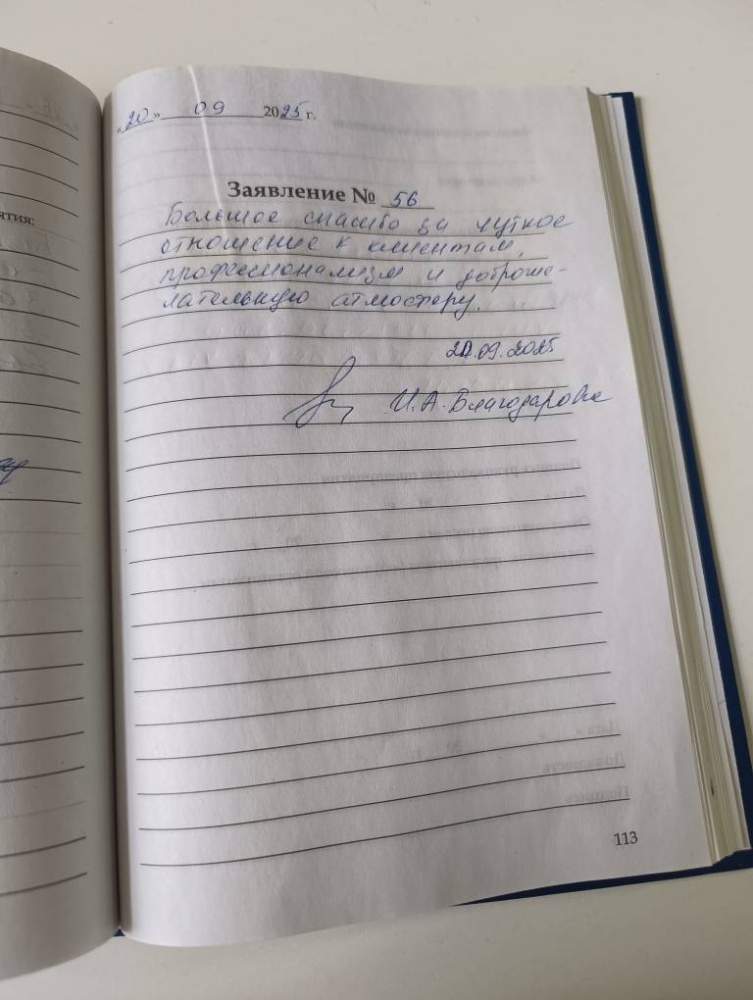 «20» 09 2025 г.
Заявление № 56
Большое спасибо за чуткое
отношение к клиентам,
профессионализм и доброже-
лательную атмосферу.
20.09.2025
И.А. Благодарова
ятия:
113